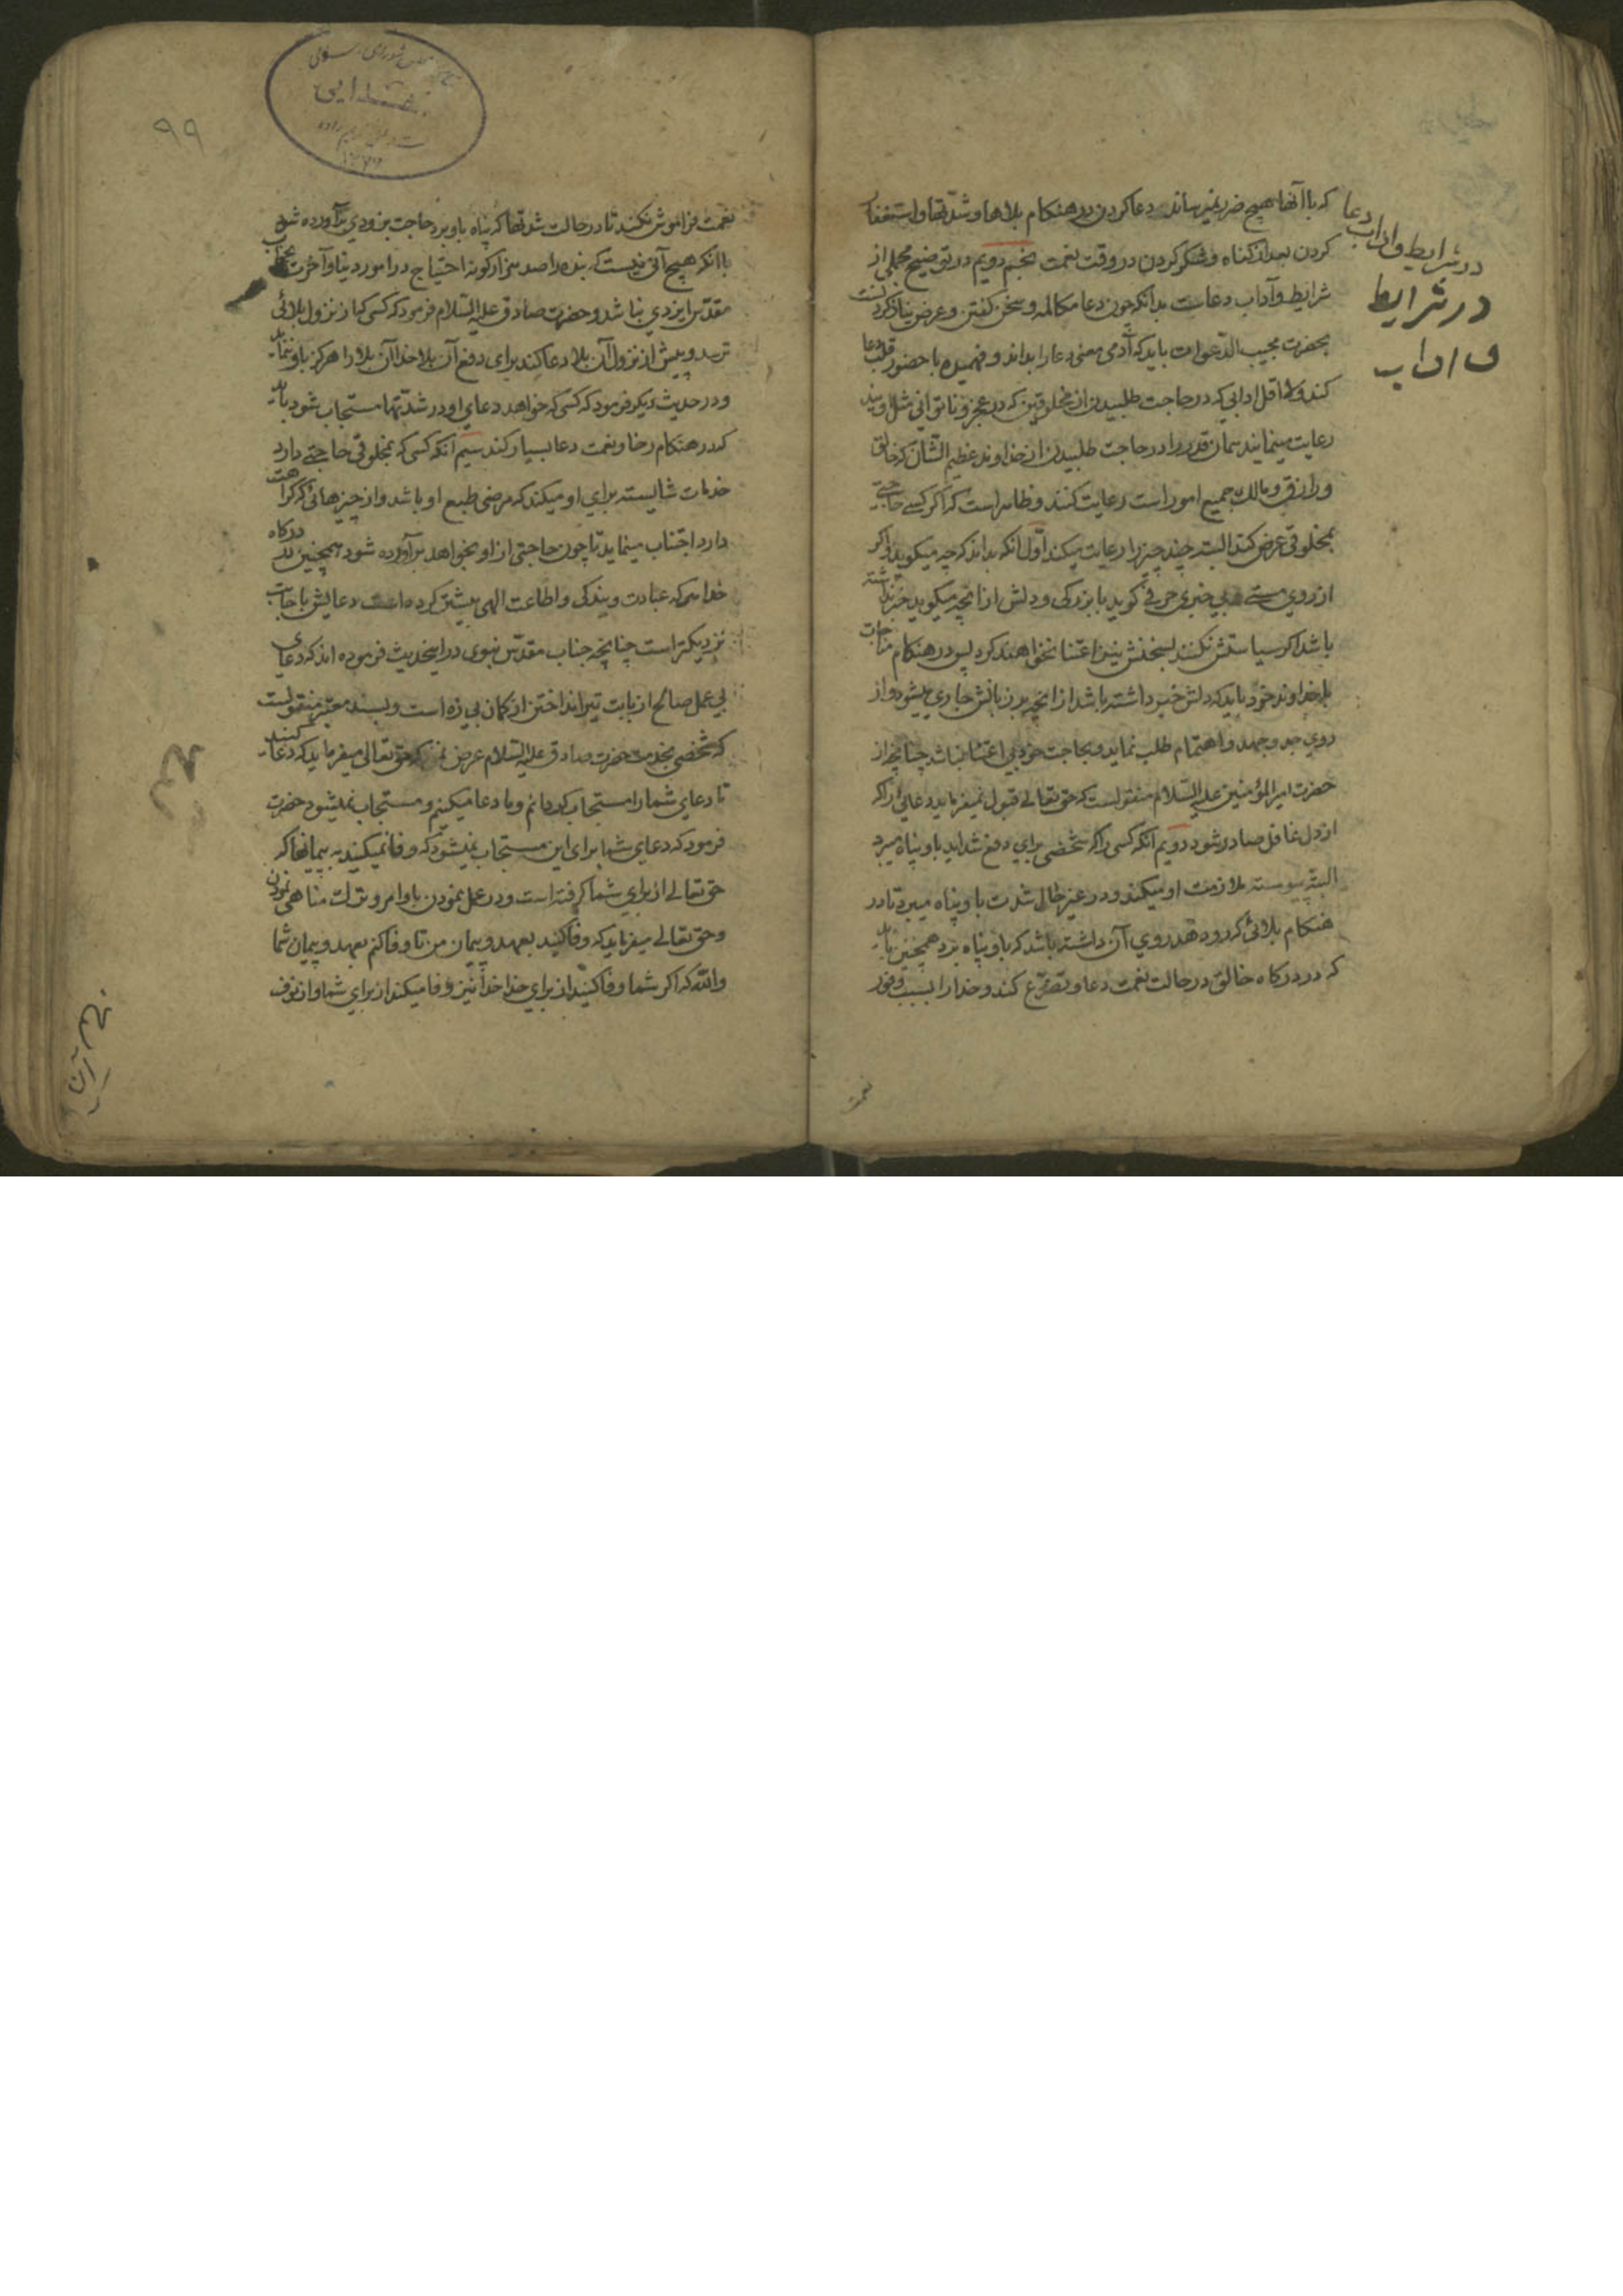 که باآنها هیچ ضرر نمیرساند دعا کردن در هنکام بلاها و شدّتها و استغفار
کردن بعد از کناه و شکر کردن در وقت نعمت نجم دویم در توضیح مجملی از
شرایط و آداب دعاست بدانکه چون دعا مکالمه و سخن کفتن و عرض نیاز کردنست
بحضرت مجیب الدّعوات باید که آدمی معنی دعا را بداند و فهمیده با حضور قلب دعا
کند و لا اقل ادابی که در حاجت طلبیدن از مخلوقین که در عجز و ناتوانی مثل اویند
رعایت مینمایند همان قدر را در حاجت طلبیدن از خداوند عظیم الشّان که خالق
و رازق و مالک جمیع امور است رعایت کنند و ظاهر است که اکر کسے حاجتے
بمخلوقی عرض کند البته چند چیز را رعایت میکند اوّل آنکه بداند که چه میکوید و اکر
از روی مستے و بیخبری حرفے کوید با بزرکی و دلش از انچه میکوید خبر نداشته
باشد اکر سیاستش نکنند بسخنش نیز اعتنا نخواهند کرد پس در هنکام مناجات
با خداوند خود باید که دلش خبر داشته باشد از انچه بر زبانش جاری میشود و از
روی جد و جهد و اهتمام طلب نماید و بحاجت خود بی اعتنا نباشد چنانچه از
حضرت امیر المؤمنین علیه السّلام منقولست که حق تعالے قبول نمیفرماید دعائی را که
از دل غافل صادر شود دویم آنکه کسی را که شخصی برای دفع شداید باو پناه میبرد
البته پیوسته ملازمت او میکند و در غیر حال شدت باو پناه میبرد تا در
هنکام بلائی که رو دهد روی آن داشته باشد که باو پناه برد همچنین باید
که در درکاه خالق در حالت نعمت دعا و تضرّع کند و خدا را بسبب وفور
نعمت
در شرایط و اداب دعا
در شرایط
و اداب
۹۹
نعمت فراموش نکند تا در حالت شدّتها که پناه باو برد حاجت بزودی برآورده شود
باانکه هیچ آنی نیست که بنده را صد هزار کونه احتیاج در امور دنیا و آخرت بجناب
مقدّس ایزدی نباشد و حضرت صادق علیه السّلام فرمود که کسی که از نزول بلائی
ترسد و پیش از نزول آن بلا دعا کند برای دفع آن بلا خدا آن بلا را هرکز باو ننماید
و در حدیث دیکر فرمود که کسی که خواهد دعای او در شدّتها مستجاب شود باید
که در هنکام رخا و نعمت دعا بسیار کند سیم آنکه کسی که بمخلوقی حاجتے دارد
خدمات شایسته برای او میکند که مرضی طبع او باشد و از چیزهائی که کراهت
دارد اجتناب مینماید تا چون حاجتی از او بخواهد برآورده شود همچنین در درکاه
خدا هر که عبادت و بندکی و اطاعت الهی بیشتر کرده است دعایش باجابت
نزدیکتر است چنانچه جناب مقدّس نبوی در اینحدیث فرموده اند که دعای
بی عمل صالح از بابت تیر انداختن از کمان بی زه است و بسند معتبر منقولست
که شخصی بخدمت حضرت صادق علیه السّلام عرض نمود که حق تعالی میفرماید که دعا کنید
تا دعای شما را مستجاب کردانم و ما دعا میکنیم و مستجاب نمیشود حضرت
فرمود که دعای شما برای این مستجاب نمیشود که وفا نمیکنید به پیمانها که
حق تعالے از برای شما کرفته است و در عمل نمودن باوامر و ترک مناهی نمودن
و حق تعالے میفرماید که وفا کنید بعهد و پیمان من تا وفا کنم بعهد و پیمان شما
واللّه که اکر شما وفا کنید از برای خدا خدا نیز وفا میکند از برای شما و از نوف